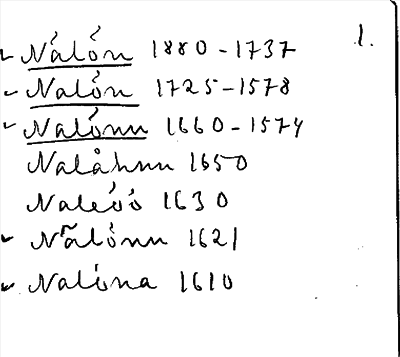 1.
Nálón 1880-1737
Nalón 1725-1578
Nalónn 1660-1574
Nalåhnn 1650
Naleóó 1630
Nãlónn 1621
Nalóna 1610